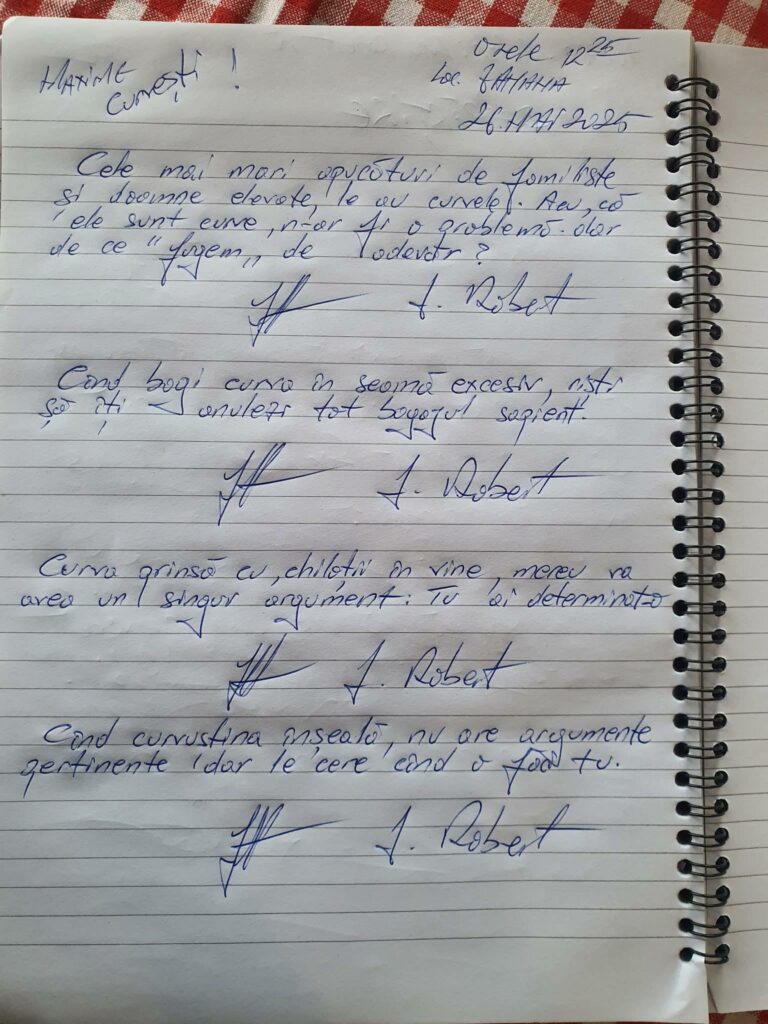 MAXIME
Curvești !
Orele 12 25
Loc. ZAHANA
26. MAI 2025
Cele mai mari apucături de familiste
și doamne elevate, le au curvele. Acu, că
ele sunt curve, n-ar fi o problemă dar
de ce "fugem,, de adevăr?
J. Robert
Când bagi curva în seamă excesiv, riști
să îți anulezi tot bagajul sapient.
J. Robert
Curva prinsă cu chiloții în vine, mereu va
avea un singur argument: Tu ai determinat-o
J. Robert
Când curvuștina înșeală, nu are argumente
pertinente dar le cere când o faci tu.
J. Robert